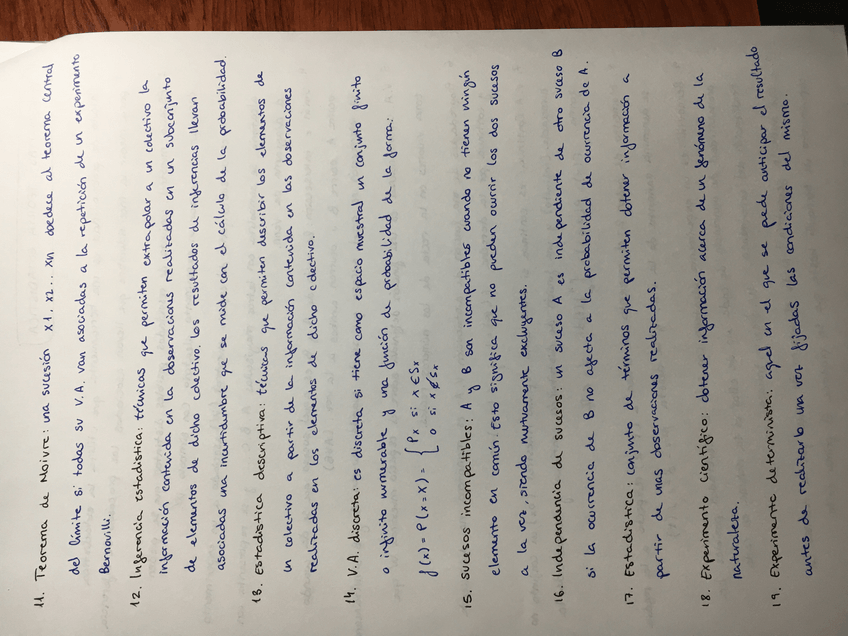 11. Teorema de Moivre: una sucesión x1, x2... xn obedece al teorema central
del límite si todas su V.A. van asociadas a la repetición de un experimento
Bernouilli.
12. Inferencia estadística: técnicas que permiten extrapolar a un colectivo la
información contenida en la observaciones realizadas en un subconjunto
de elementos de dicho colectivo. Los resultados de inferencias llevan
asociadas una incertidumbre que se mide con el cálculo de la probabilidad.
13. Estadística descriptiva: técnicas que permiten describir los elementos de
un colectivo a partir de la información contenida en las observaciones
realizadas en los elementos de dicho colectivo.
14. V.A. discreta: es discreta si tiene como espacio muestral un conjunto finito
o infinito numerable y una función de probabilidad de la forma:
f(x) = P(X=x) = { Px si x ∈ Sx
0 si x ∉ Sx
15. Sucesos incompatibles: A y B son incompatibles cuando no tienen ningún
elemento en común. Esto significa que no pueden ocurrir los dos sucesos
a la vez, siendo mutuamente excluyentes.
16. Independencia de sucesos: un suceso A es independiente de otro suceso B
si la ocurrencia de B no afecta a la probabilidad de ocurrencia de A.
17. Estadística: conjunto de términos que permiten obtener información a
partir de unas observaciones realizadas.
18. Experimento científico: obtener información acerca de un fenómeno de la
naturaleza.
19. Experimento determinista: aquel en el que se puede anticipar el resultado
antes de realizarlo una vez fijadas las condiciones del mismo.